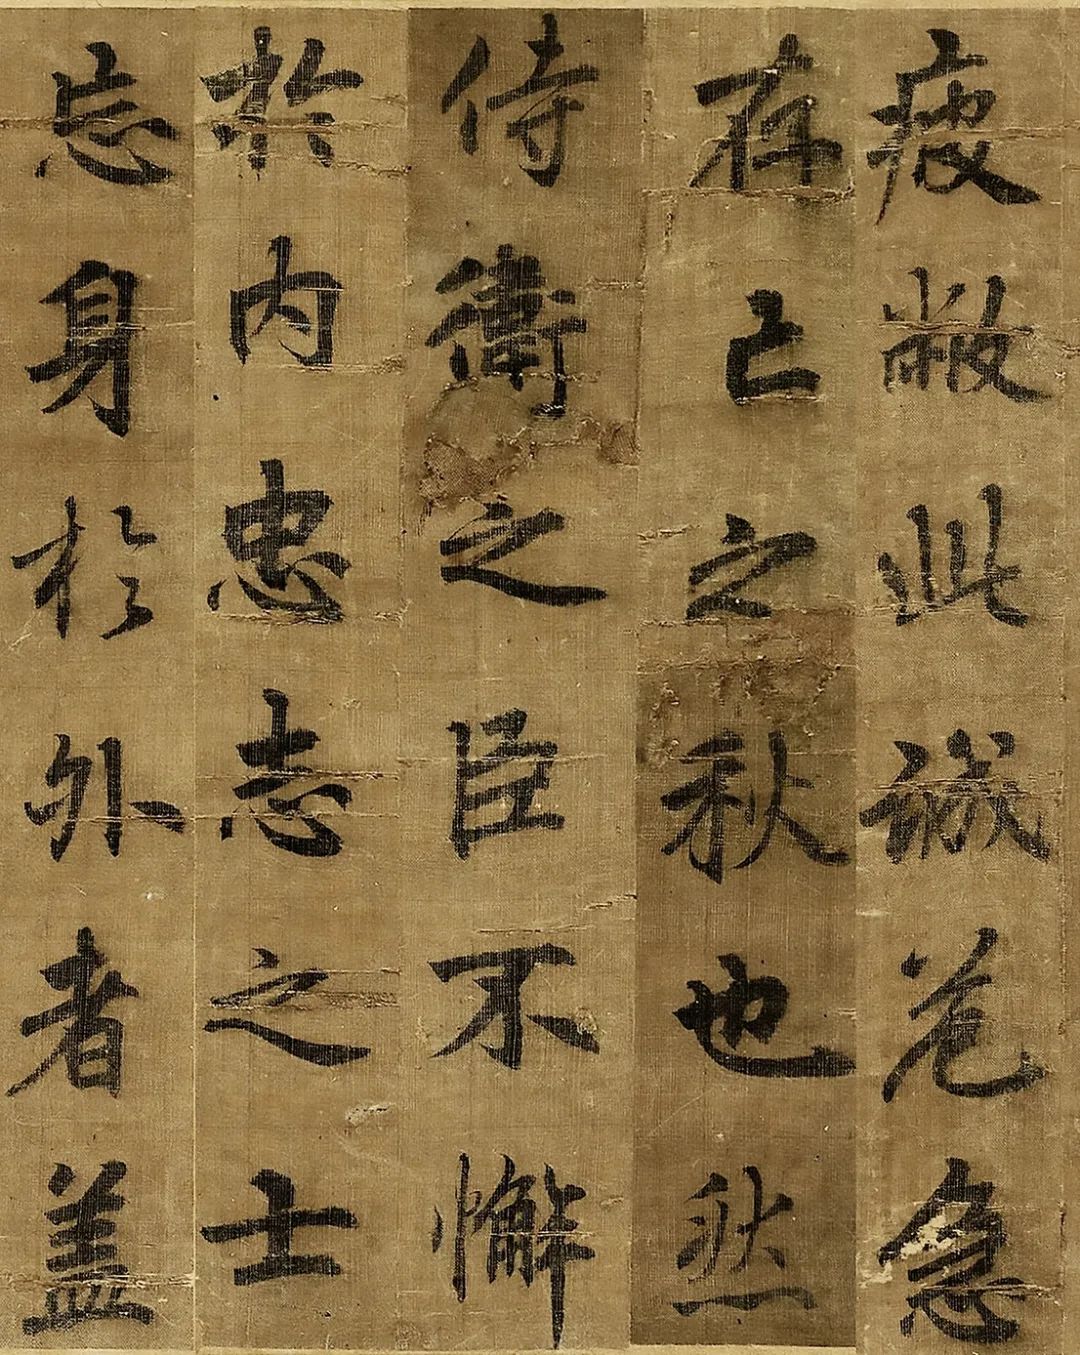 疲敝此誠危急
存亡之秋也然
侍衛之臣不懈
於内忠志之士
忘身於外者盖